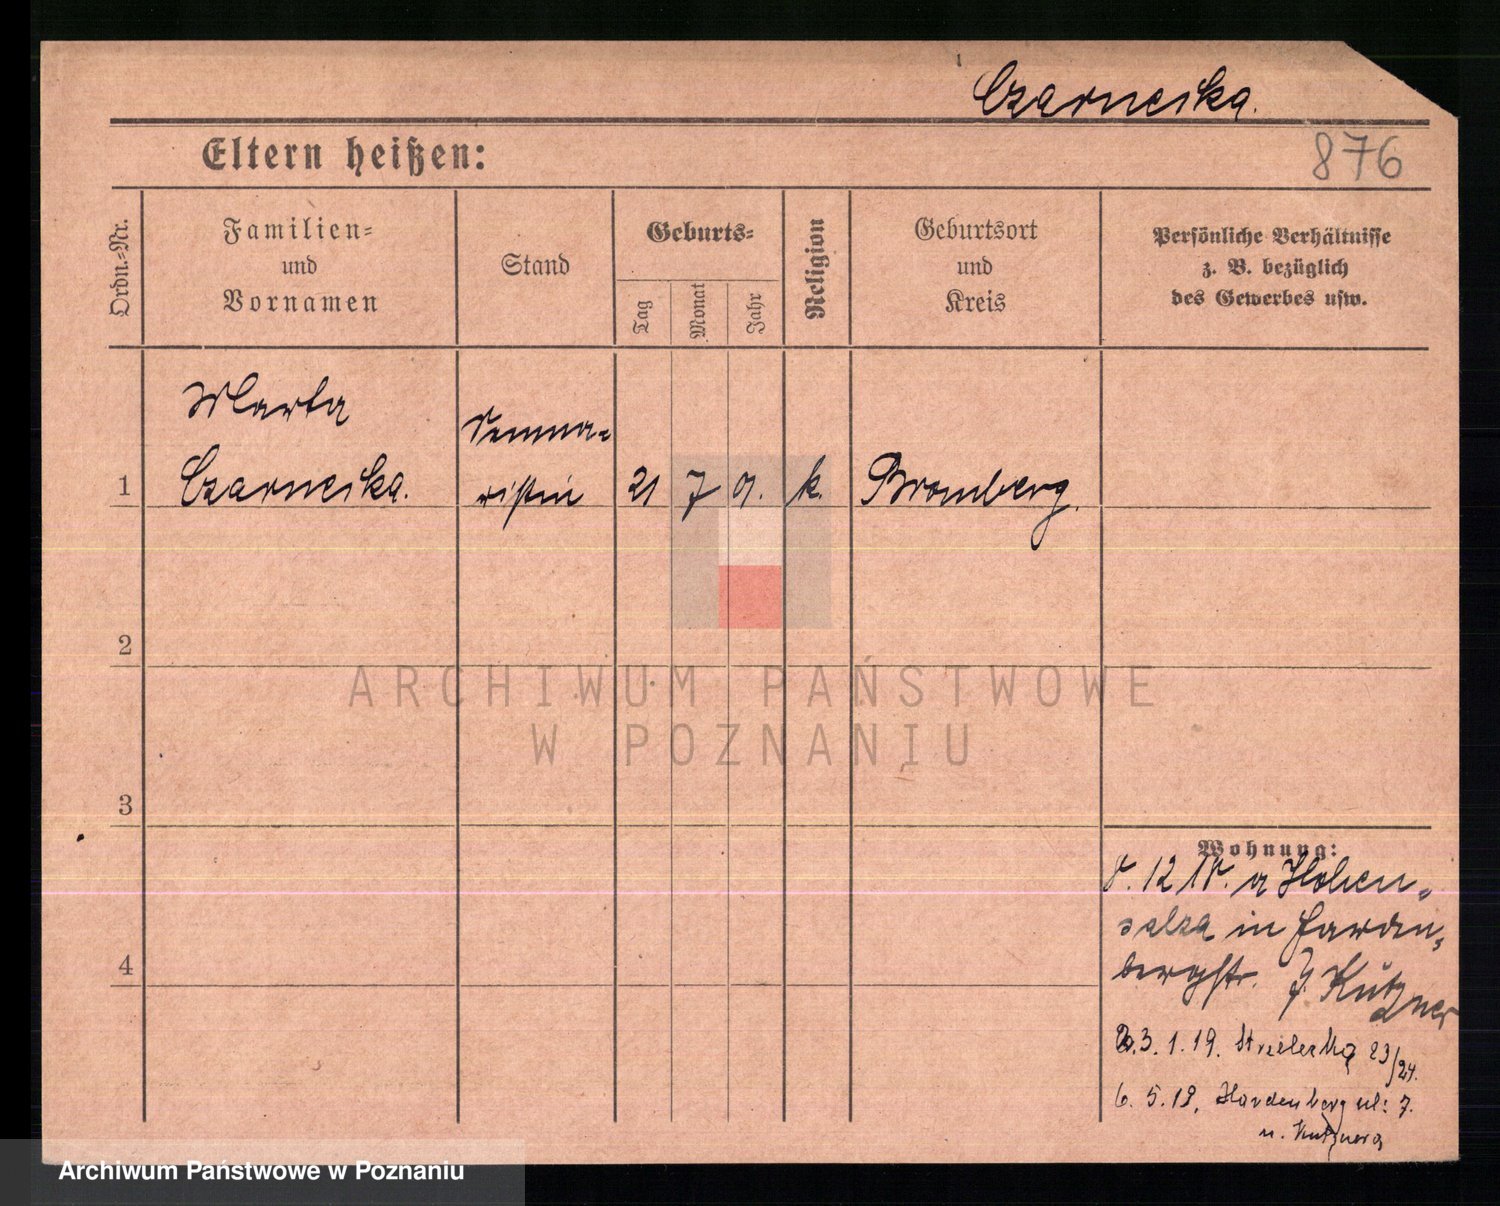 Czarnecka.
Eltern heißen:
876
Ordn.-Nr.
Familien-
und
Vornamen
Stand
Geburts-
Tag
Monat
Jahr
Religion
Geburtsort
und
Kreis
Persönliche Verhältnisse
z. B. bezüglich
des Gewerbes usw.
Marta
Czarnecka.
Semina-
ristin
1
21
7
01.
k.
Bromberg.
2
3
4
ARCHIWUM PAŃSTWOWE
W POZNANIU
Wohnung:
12 Hohen-
salza in Harden-
bergstr. Kutzner
23.1.19. Strzelecka 23/24.
6.5.19. Hardenberg ul: 7.
u. Kutznera
Archiwum Państwowe w Poznaniu